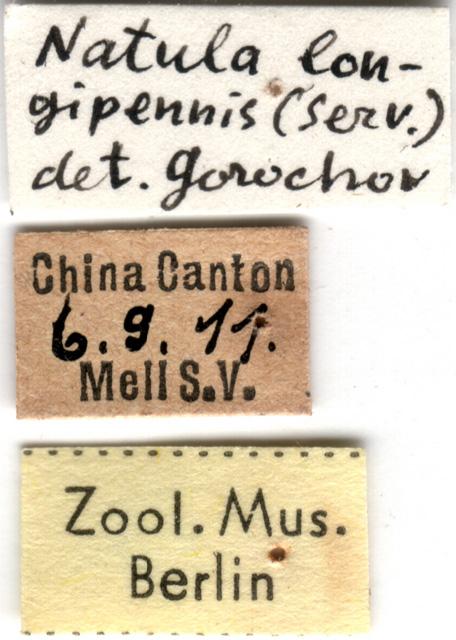 Natula lon-
gipennis (Serv.)
det. Gorochov
China Canton
6.9.11.
Mell S.V.
Zool. Mus.
Berlin